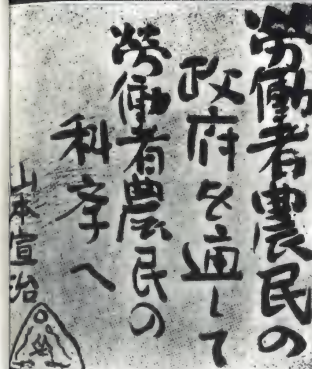 労働者農民の
政府を通して
労働者農民の
科学へ
山本宣治